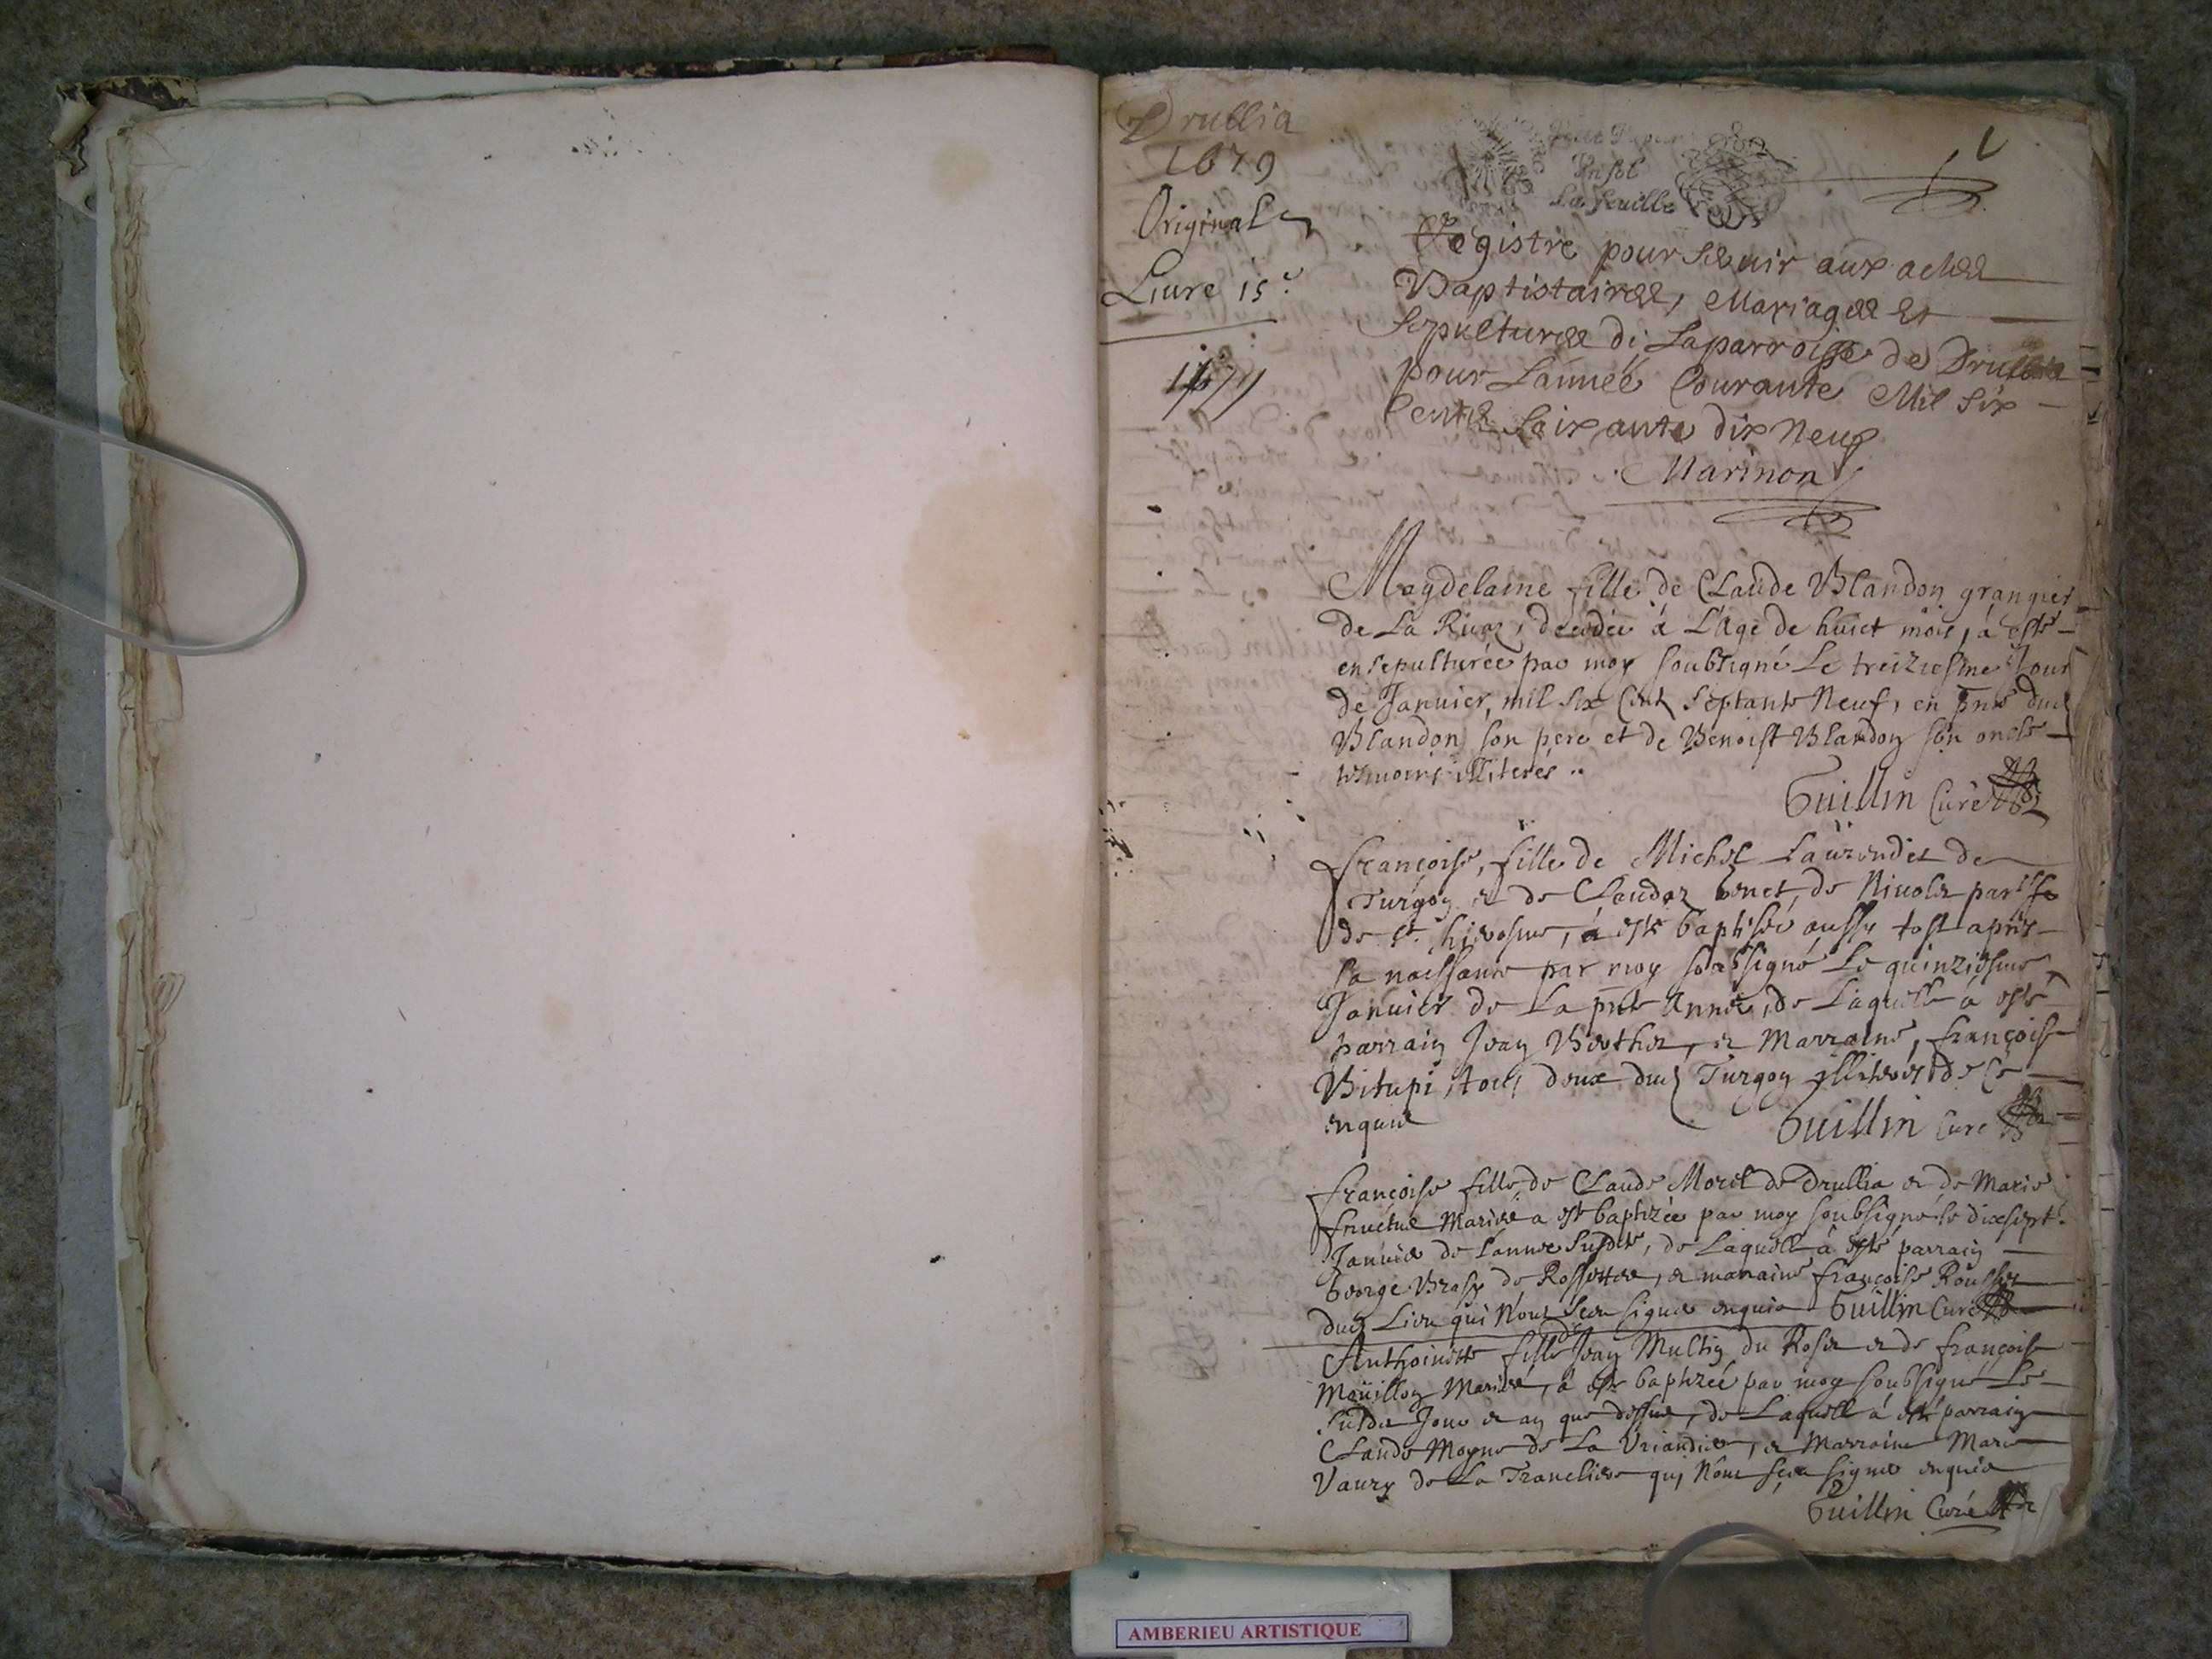 Drullia
1679
Original
Livre 15.e
1679
La feuille
Registre pour servir aux actes
Baptistaires, Mariages et
Sepultures de Laparroisse de Drullia
pour Lannéé Courante Mil six
Cents soixante dix Neuf
Marinon
Magdelaine fille de CLaude Blandon grangier
de La Ruaz, décédée á L'Age de huict mois, á esté
ensepulturée par moy soubsigné Le treiziesme Jour
de Janvier, mil six Cent septante Neuf, en pnce dud
Blandon son pere et de Benoist Blandon son oncle
tesmoins illiterés ..
Guillin Curé
françoise, fille de Michel Laurendet de
Turgon et de Claudaz de Nivolet
de St. hierosme, á esté baptisée aussy tost aprés
sa naissance par moy soubsigné Le quinziesme
Janvier de La pnte Année, de Laquelle á esté
parrain Jean Berthet, et Marraine, françoise
Bitupi, tous deux dud Turgon illiteres de Ce
enquis
Guillin Curé
françoise fille de CLaude Morel de Drullia et de Marie
mariés a esté baptizée par moy soubsigné le dixsept.
Janvier de Lannee Susdite, de Laquelle á esté parrain
George de Rossettes, et maraine françoise Rousset
dud Lieu qui N'ont sceu signer enquis Guillin Curé
Anthoinette fille de Jean Multin du Roset et de françoise
Moüillon Mariés, á esté baptizéé par moy soubsigné Le
susdit Jour et an que dessus, de Laquelle á esté parrain
CLaude Moyne de La Vriandiere, et Marraine Marie
Vaury de La Trancliere qui N'ont sceu signer enquis
Guillin Curé
AMBERIEU ARTISTIQUE